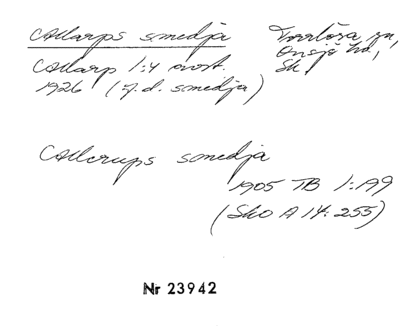 Allarps smedja
Torrlösa sn,
Onsjö hd,
Sk.
Allarp 1:4 avst.
1926 (f.d. smedja)
Allerups smedja
1905 TB 1:199
(Sko A 14:255)
Nr 23942